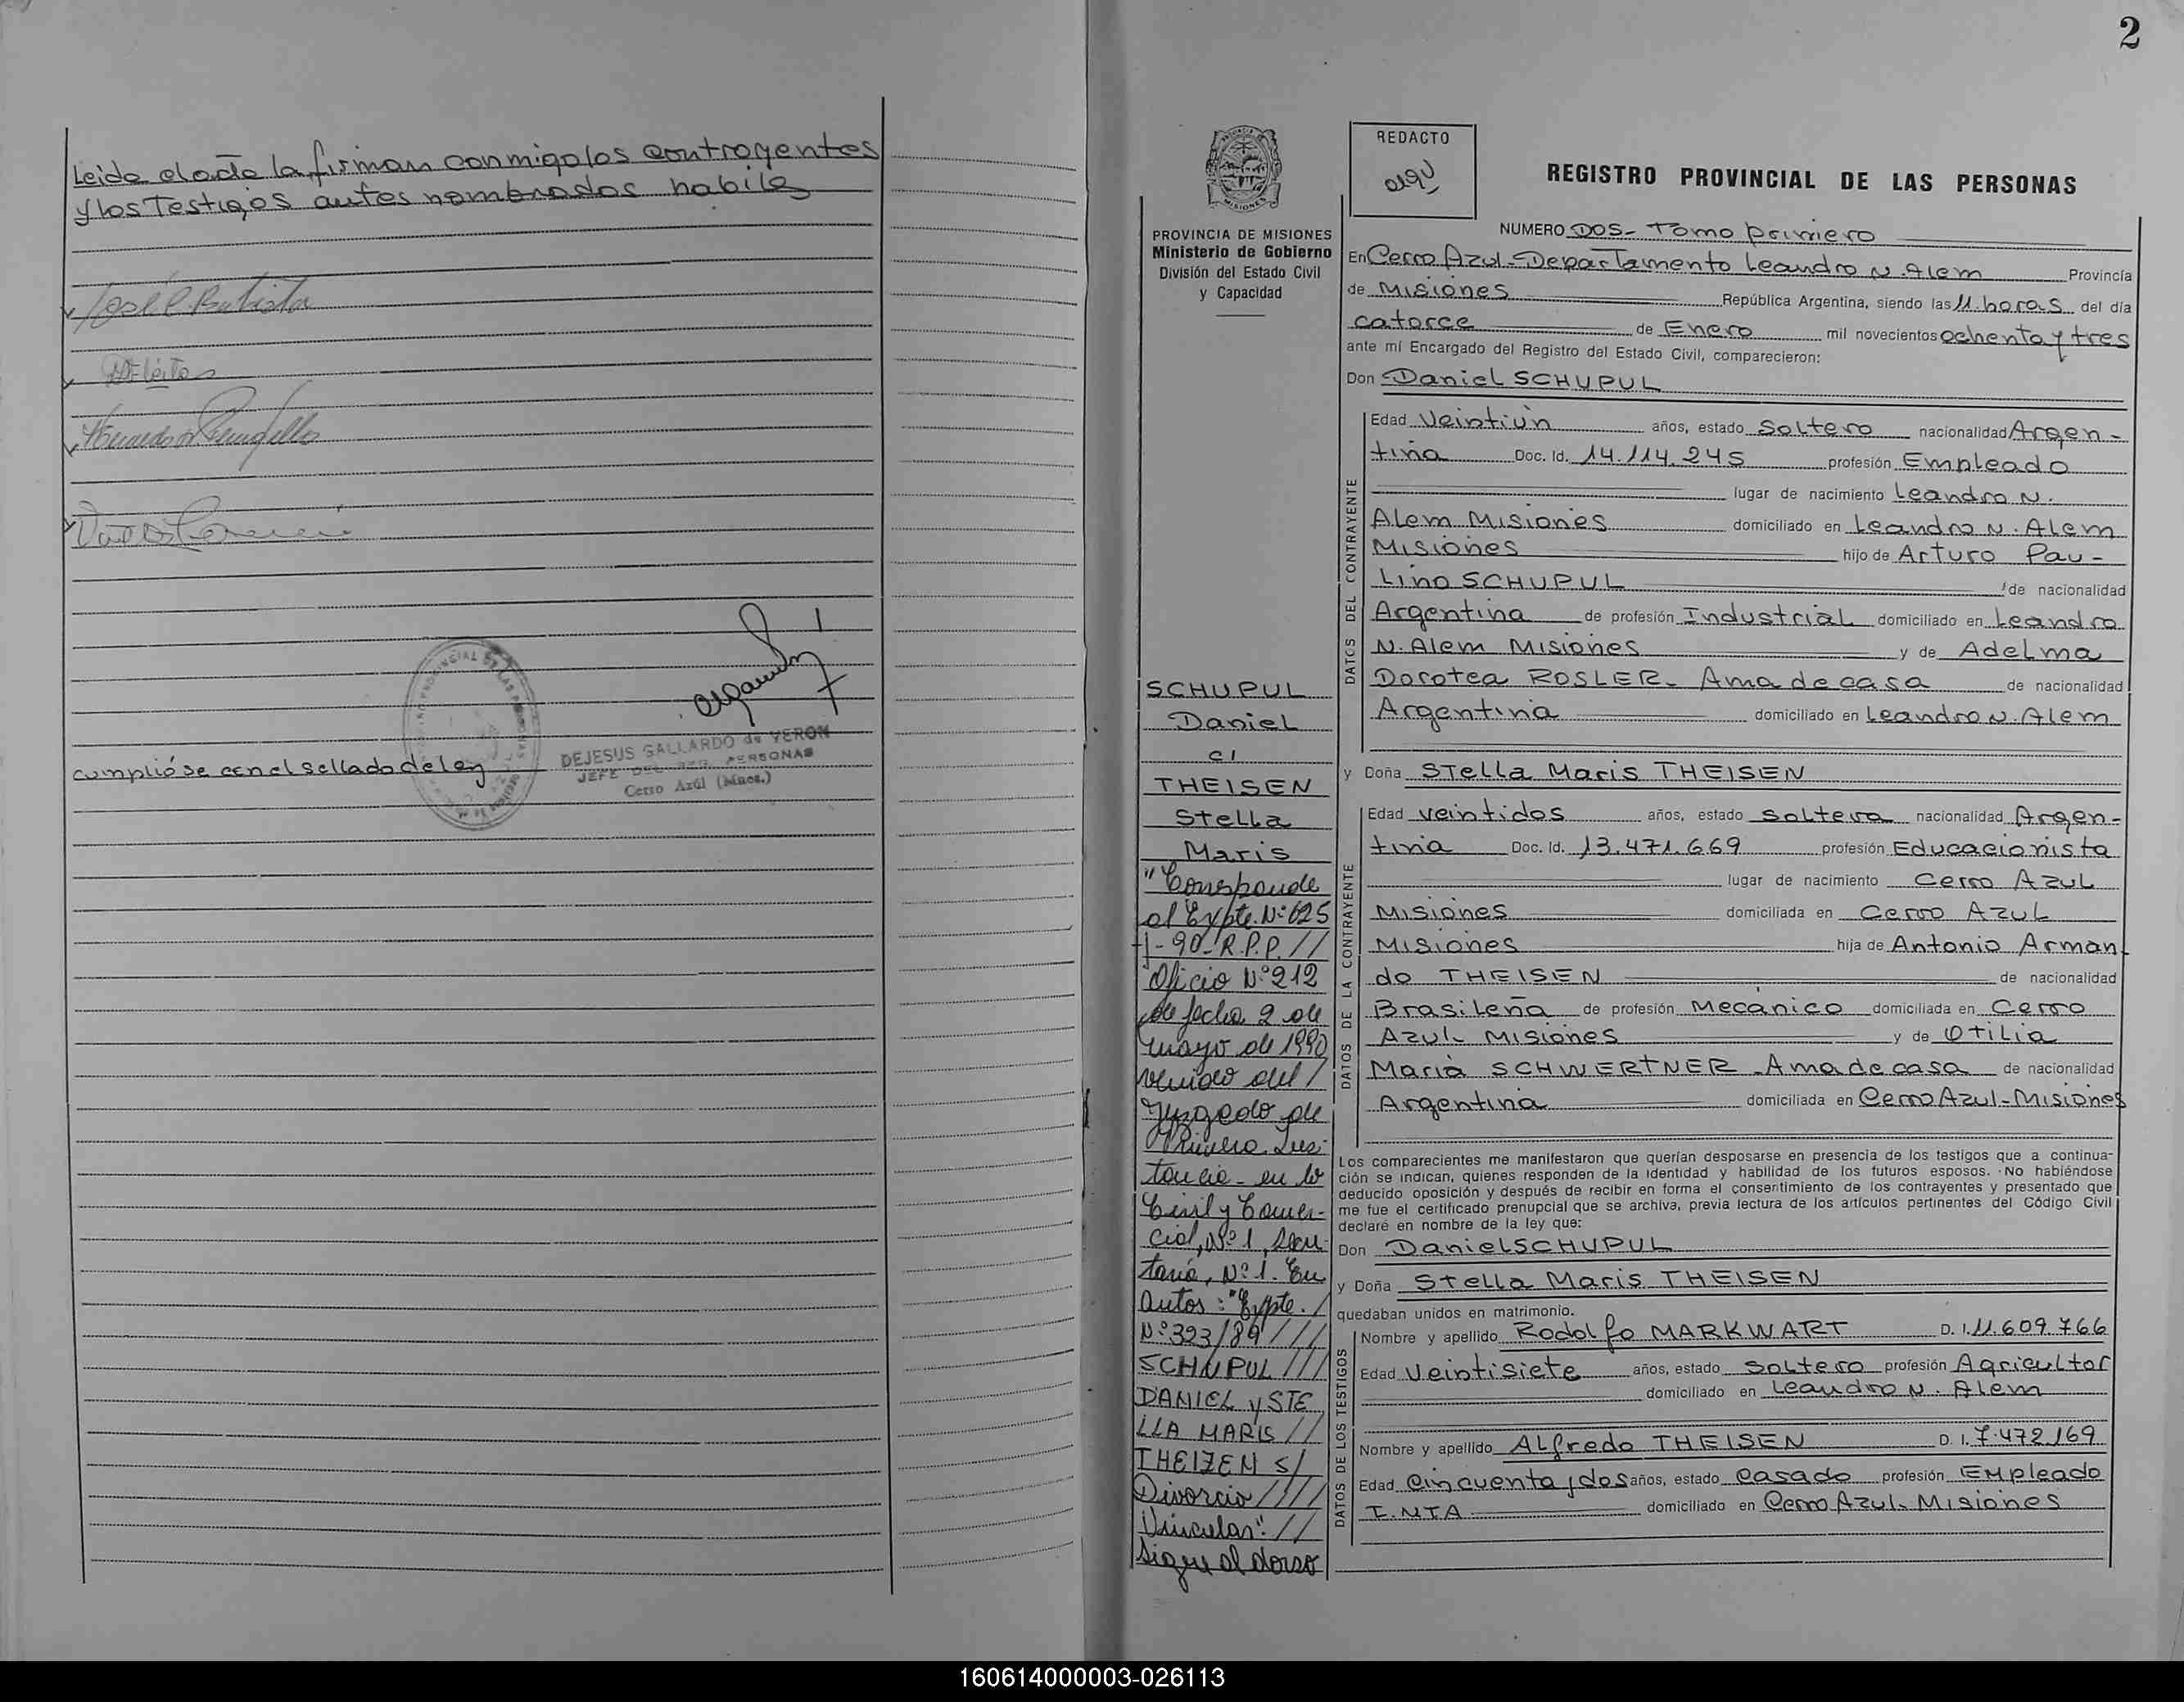 Leida el acta la firman conmigo los contrayentes
y los Testigos antes nombrados habile
José R. Batista
cumplióse con el sellado de ley
DEJESUS GALLARDO de VERON
JEFE DEL REG. PERSONAS
Cerro Azul (Mnes.)
2
PROVINCIA DE MISIONES
Ministerio de Gobierno
División del Estado Civil
y Capacidad
SCHUPUL
Daniel
c/
THEISEN
Stella
Maris
"Corresponde
al Expte. Nº 625
-90-R.P.P.//
Oficio Nº 212
de fecha 2 de
mayo de 1990
venido del /
Juzgado de
Primera Ins-
tancia en lo
Civil y Comer-
cial, Nº 1, Secre
taria, Nº 1. En
Autos: "Expte. /
Nº 323/89 ///
SCHUPUL ///
DANIEL y STE
LLA MARIS //
THEIZEN s/
Divorcio ////
Vincular". //
Sigue al dorso
REDACTO
REGISTRO PROVINCIAL DE LAS PERSONAS
NUMERO DOS- Tomo primero
En Cerro Azul-Departamento Leandro N. Alem Provincia
de Misiones República Argentina, siendo las 11 horas del día
catorce de Enero mil novecientos ochenta y tres
ante mí Encargado del Registro del Estado Civil, comparecieron:
Don Daniel SCHUPUL
DATOS DEL CONTRAYENTE
Edad Veintiún años, estado Soltero nacionalidad Argen-
tina Doc. Id. 14.114.245 profesión Empleado
lugar de nacimiento Leandro N.
Alem Misiones domiciliado en Leandro N. Alem
Misiones hijo de Arturo Pau-
Lino SCHUPUL de nacionalidad
Argentina de profesión Industrial domiciliado en Leandro
N. Alem Misiones y de Adelma
Dorotea ROSLER- Ama de casa de nacionalidad
Argentina domiciliado en Leandro N. Alem
y Doña Stella Maris THEISEN
DATOS DE LA CONTRAYENTE
Edad veintidos años, estado soltera nacionalidad Argen-
tina Doc. Id. 13.471.669 profesión Educacionista
lugar de nacimiento Cerro Azul
Misiones domiciliada en Cerro Azul
Misiones hija de Antonio Arman
do THEISEN de nacionalidad
Brasileña de profesión Mecánico domiciliada en Cerro
Azul- Misiones y de Otilia
Maria SCHWERTNER -Ama de casa de nacionalidad
Argentina domiciliada en Cerro Azul-Misiones
Los comparecientes me manifestaron que querían desposarse en presencia de los testigos que a continua-
ción se indican, quienes responden de la identidad y habilidad de los futuros esposos. No habiéndose
deducido oposición y después de recibir en forma el consentimiento de los contrayentes y presentado que
me fue el certificado prenupcial que se archiva, previa lectura de los artículos pertinentes del Código Civil
declaré en nombre de la ley que:
Don Daniel SCHUPUL
y Doña Stella Maris THEISEN
quedaban unidos en matrimonio.
DATOS DE LOS TESTIGOS
Nombre y apellido Rodolfo MARKWART D. I. 11.609.766
Edad Veintisiete años, estado Soltero profesión Agricultor
domiciliado en Leandro N. Alem
Nombre y apellido Alfredo THEISEN D. I. 7.472.169
Edad Cincuenta y dos años, estado Casado profesión Empleado
I.NTA domiciliado en Cerro Azul-Misiones
160614000003-026113